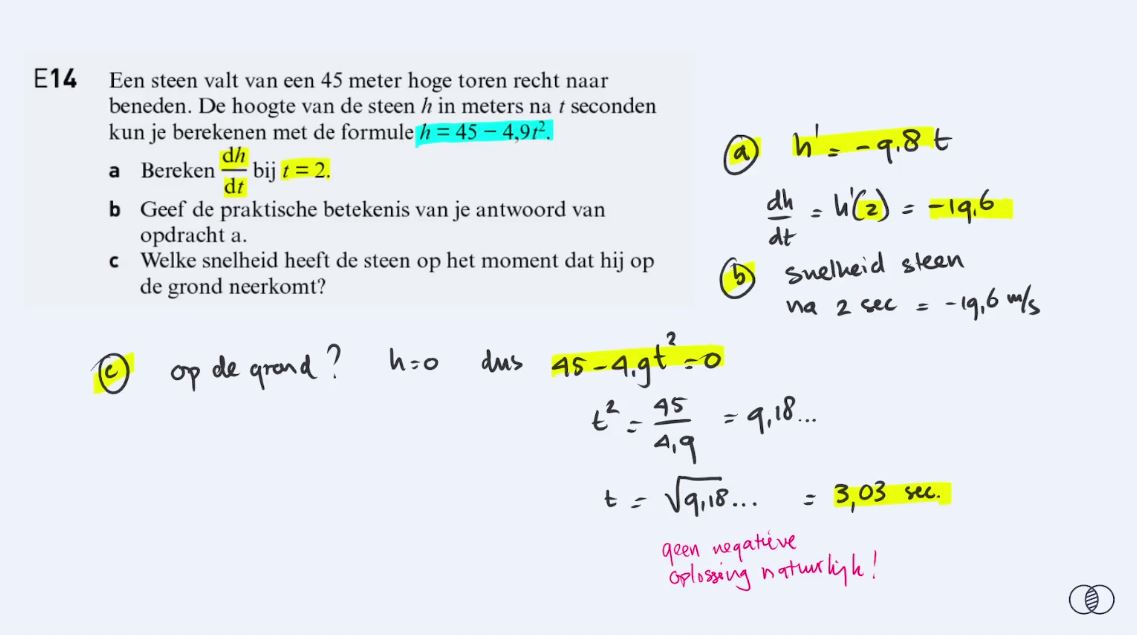 E14 Een steen valt van een 45 meter hoge toren recht naar
beneden. De hoogte van de steen h in meters na t seconden
kun je berekenen met de formule h = 45 – 4,9t².
a Bereken dh/dt bij t = 2.
b Geef de praktische betekenis van je antwoord van
opdracht a.
c Welke snelheid heeft de steen op het moment dat hij op
de grond neerkomt?
a h' = -9.8t
dh/dt = h'(2) = -19,6
b snelheid steen
na 2 sec = -19,6 m/s
c op de grond? h=0 dus 45-4,9t²=0
t² = 45/4,9 = 9,18...
t = √9,18... = 3,03 sec.
geen negatieve
oplossing natuurlijk!